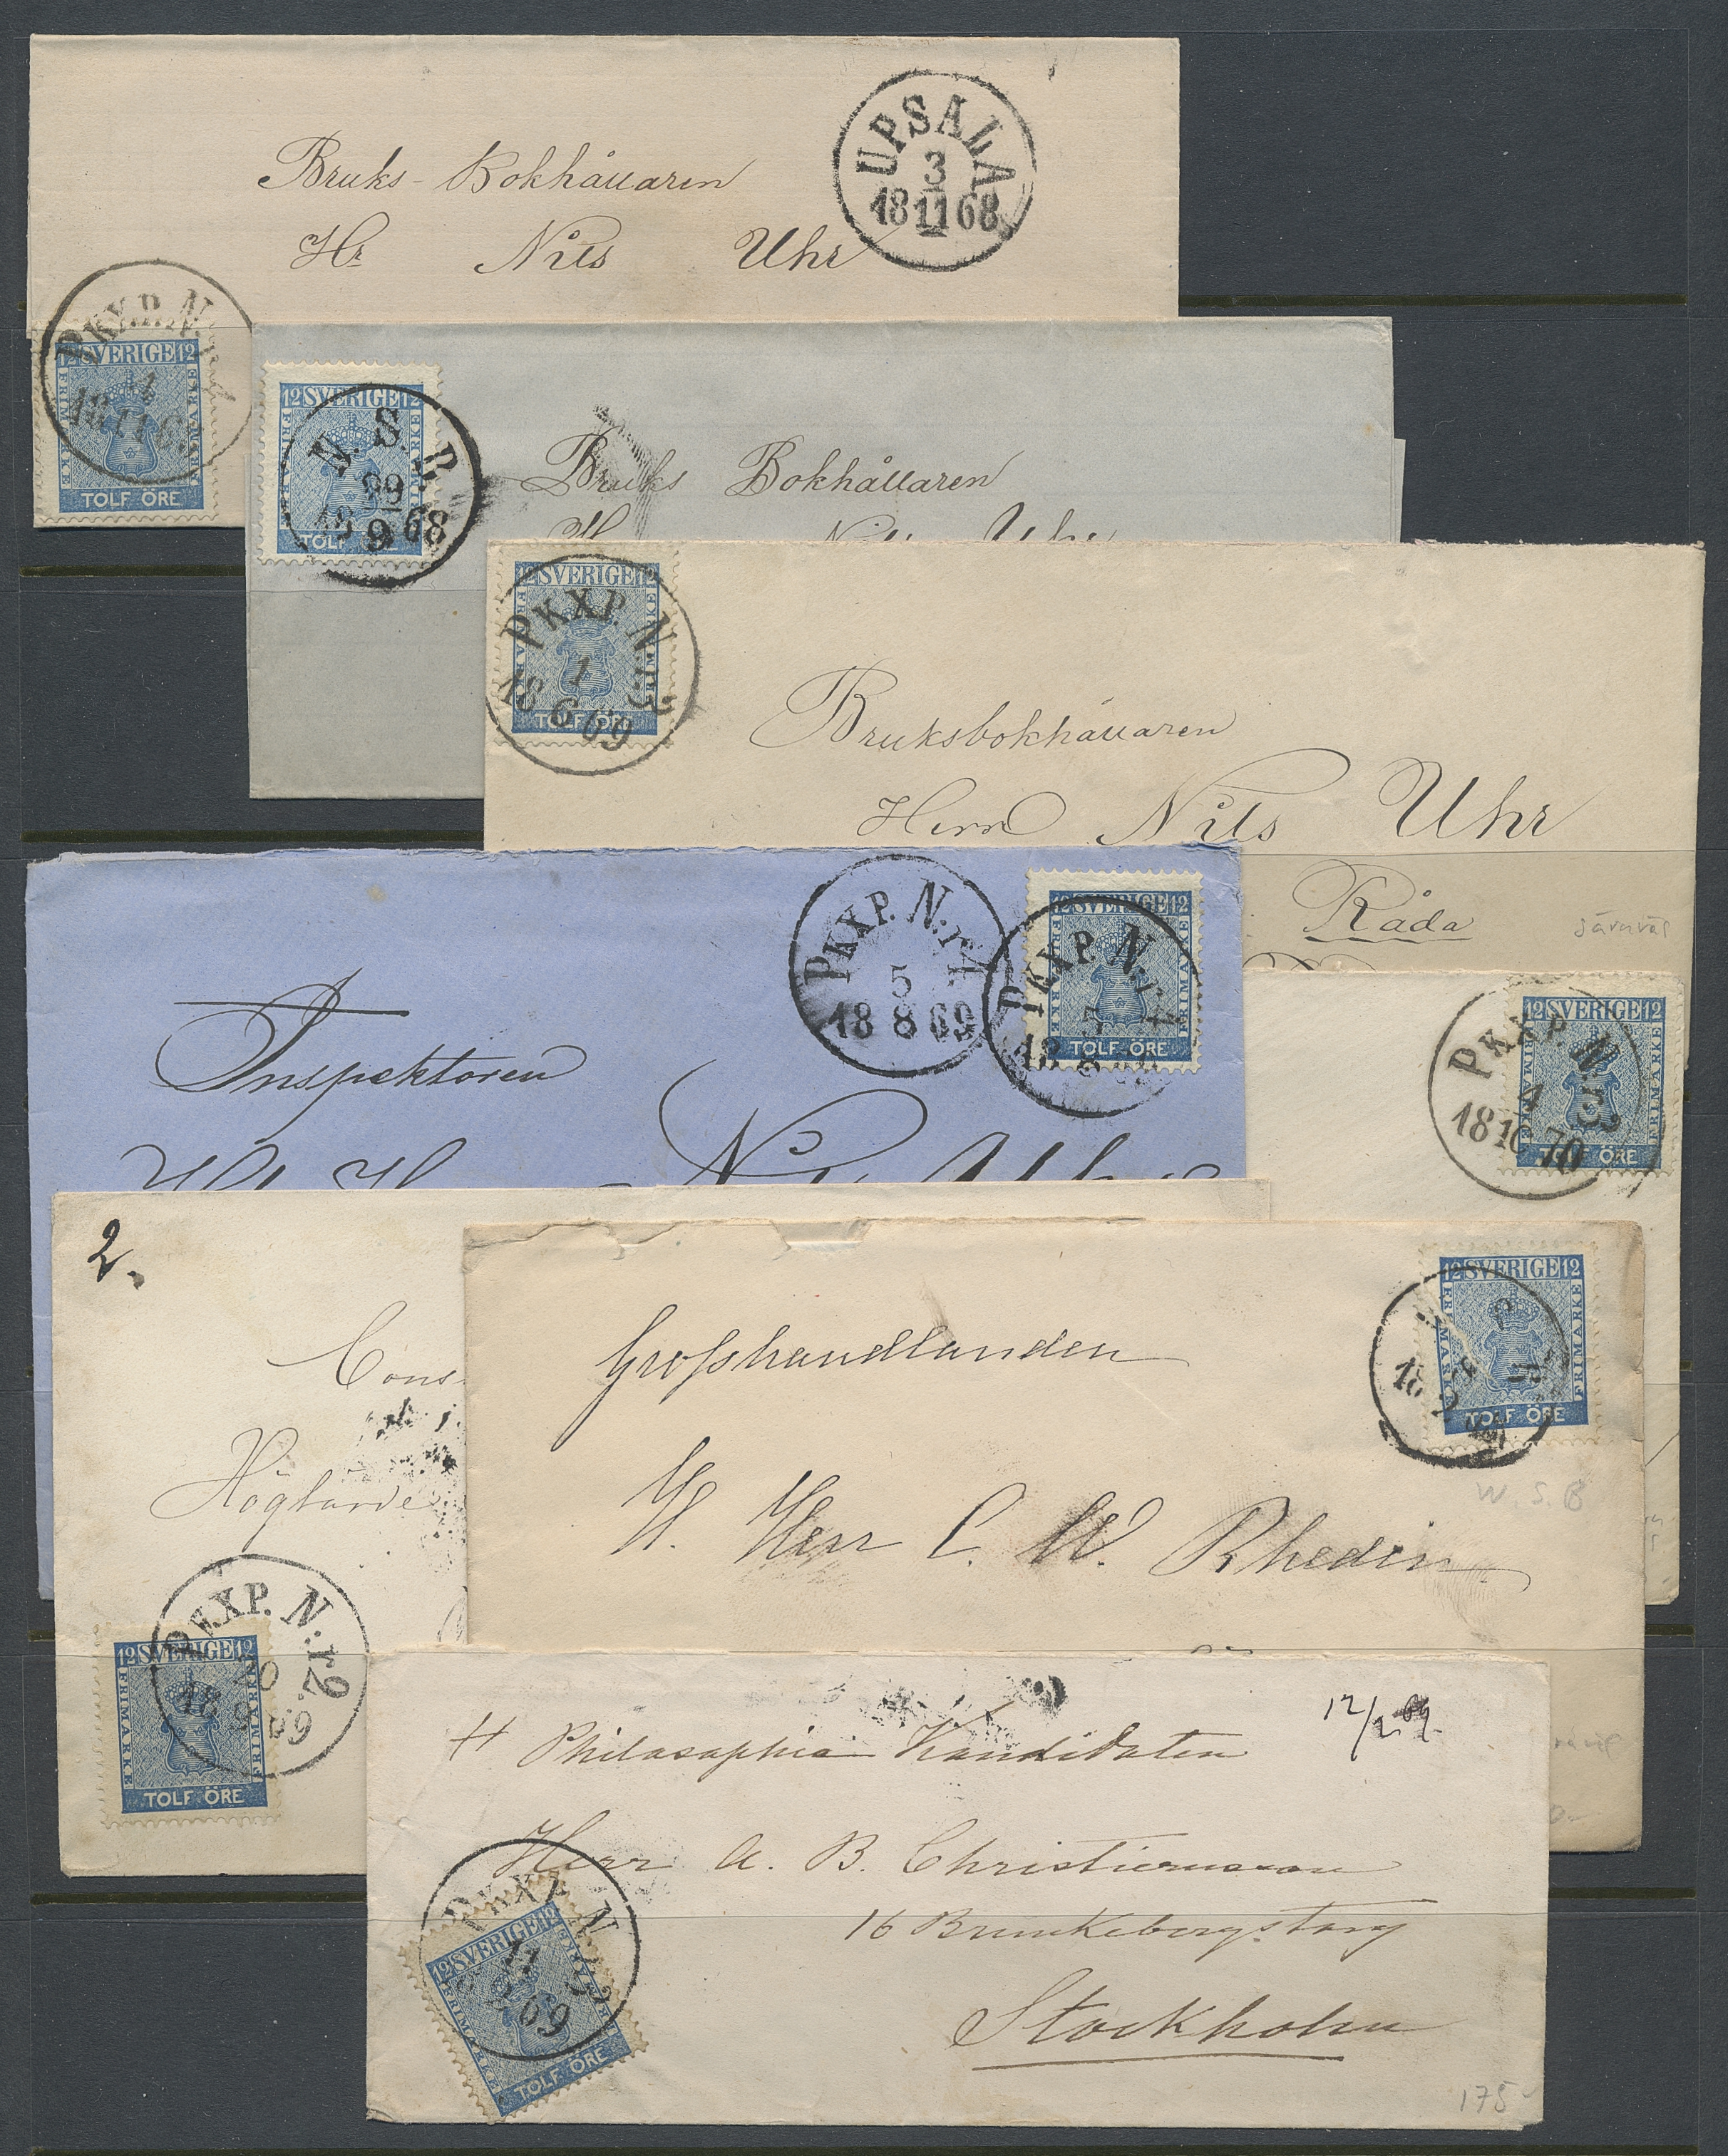 Bruks-Bokhållaren
Hr Nils Uhr
UPSALA
3
18 11 68
PKXP. N.
12 SVERIGE 12
FRIMÄRKE
TOLF ÖRE
12 SVERIGE 12
FRIMÄRKE
TOLF
N. S. B.
29
18 9 68
Bruks Bokhållaren
12 SVERIGE 12
FRIMÄRKE
TOLF ÖRE
PKXP. N.r 3
1
18 6 69
Bruksbokhållaren
Herr Nils Uhr
Råda
PKXP. N.r
5
18 8 69
12 SVERIGE 12
FRIMÄRKE
TOLF ÖRE
PKXP. N.r
5
18 8
Inspektoren
12 SVERIGE 12
FRIMÄRKE
TOLF ÖRE
PKXP. N.r 3
4
18 10 70
2.
Cons
Högtärde
PKXP. N.r 2.
20
18 69
12 SVERIGE 12
FRIMÄRKE
TOLF ÖRE
Grosshandlanden
H. Herr C. W. Rhedin
12 SVERIGE 12
FRIMÄRKE
TOLF ÖRE
18
W. S. B
12/2 69.
H Philosophie Kandidaten
Herr A. B. Christiernsson
16 Brunkebergstorg
Stockholm
PKXP. N
11
2 69
12 SVERIGE 12
FRIMÄRKE
TOLF ÖRE
175